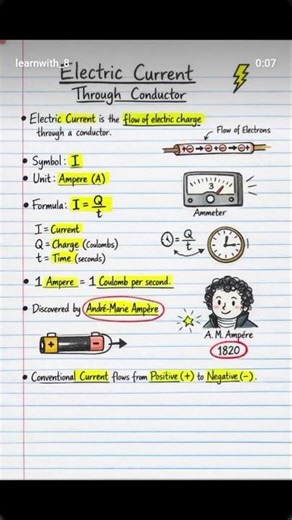 learnwith_8
0:07
Electric Current
Through Conductor
• Electric Current is the flow of electric charge
through a conductor.
Flow of Electrons
• Symbol: I
• Unit: Ampere (A)
3
Ammeter
• Formula: I = Q/t
I = Current
Q = Charge (Coulombs)
t = Time (seconds)
= Q/t
• 1 Ampere = 1 Coulomb per second.
• Discovered by André-Marie Ampère
A. M. Ampére
1820
+ -
• Conventional Current flows from Positive (+) to Negative (-).